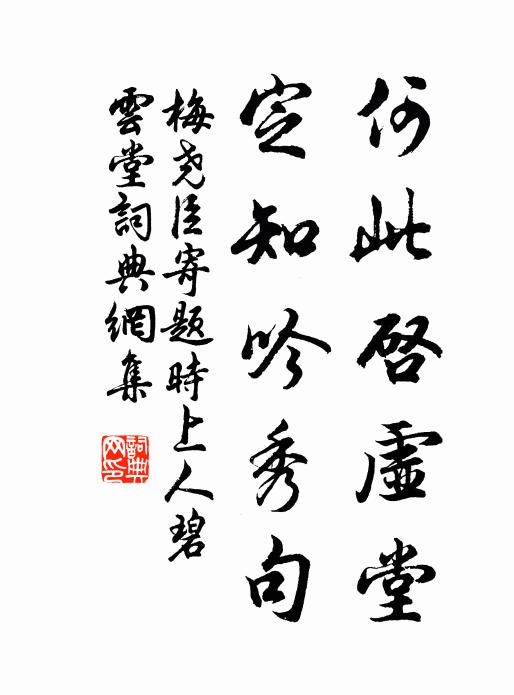 何此啓虛堂
定知吟秀句
梅堯臣寄題時上人碧
雲堂詞典網集
詞典
网印